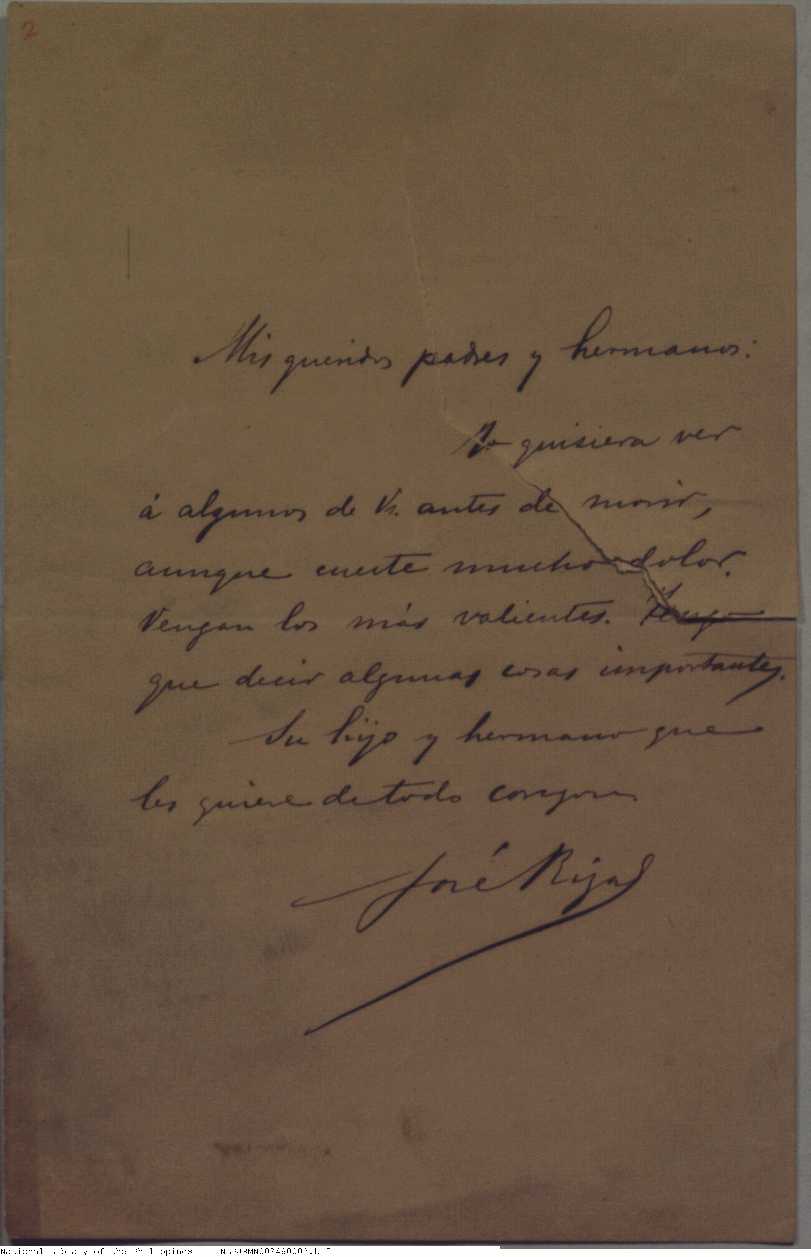 2
Mis queridos padres y hermanos:
Yo quisiera ver
á algunos de Vs. antes de morir,
aunque cueste mucho dolor.
Vengan los más valientes. Tengo
que decir algunas cosas importantes.
Su hijo y hermano que
les quiere de todo corazon
José Rizal
National Library of the Philippines